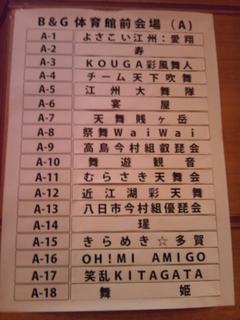 B&G 体育館前会場 (A)
A-1 よさこい江州:愛翔
A-2 寿
A-3 KOUGA彩風舞人
A-4 チーム天下吹舞
A-5 江州大舞隊
A-6 宴屋
A-7 天舞賤ヶ岳
A-8 祭舞WaiWai
A-9 高島今村組叡琵会
A-10 舞遊観音
A-11 むらさき天舞会
A-12 近江湖彩天舞
A-13 八日市今村組優琵会
A-14 瑆
A-15 きらめき☆多賀
A-16 OH!MI AMIGO
A-17 笑乱KITAGATA
A-18 舞姫